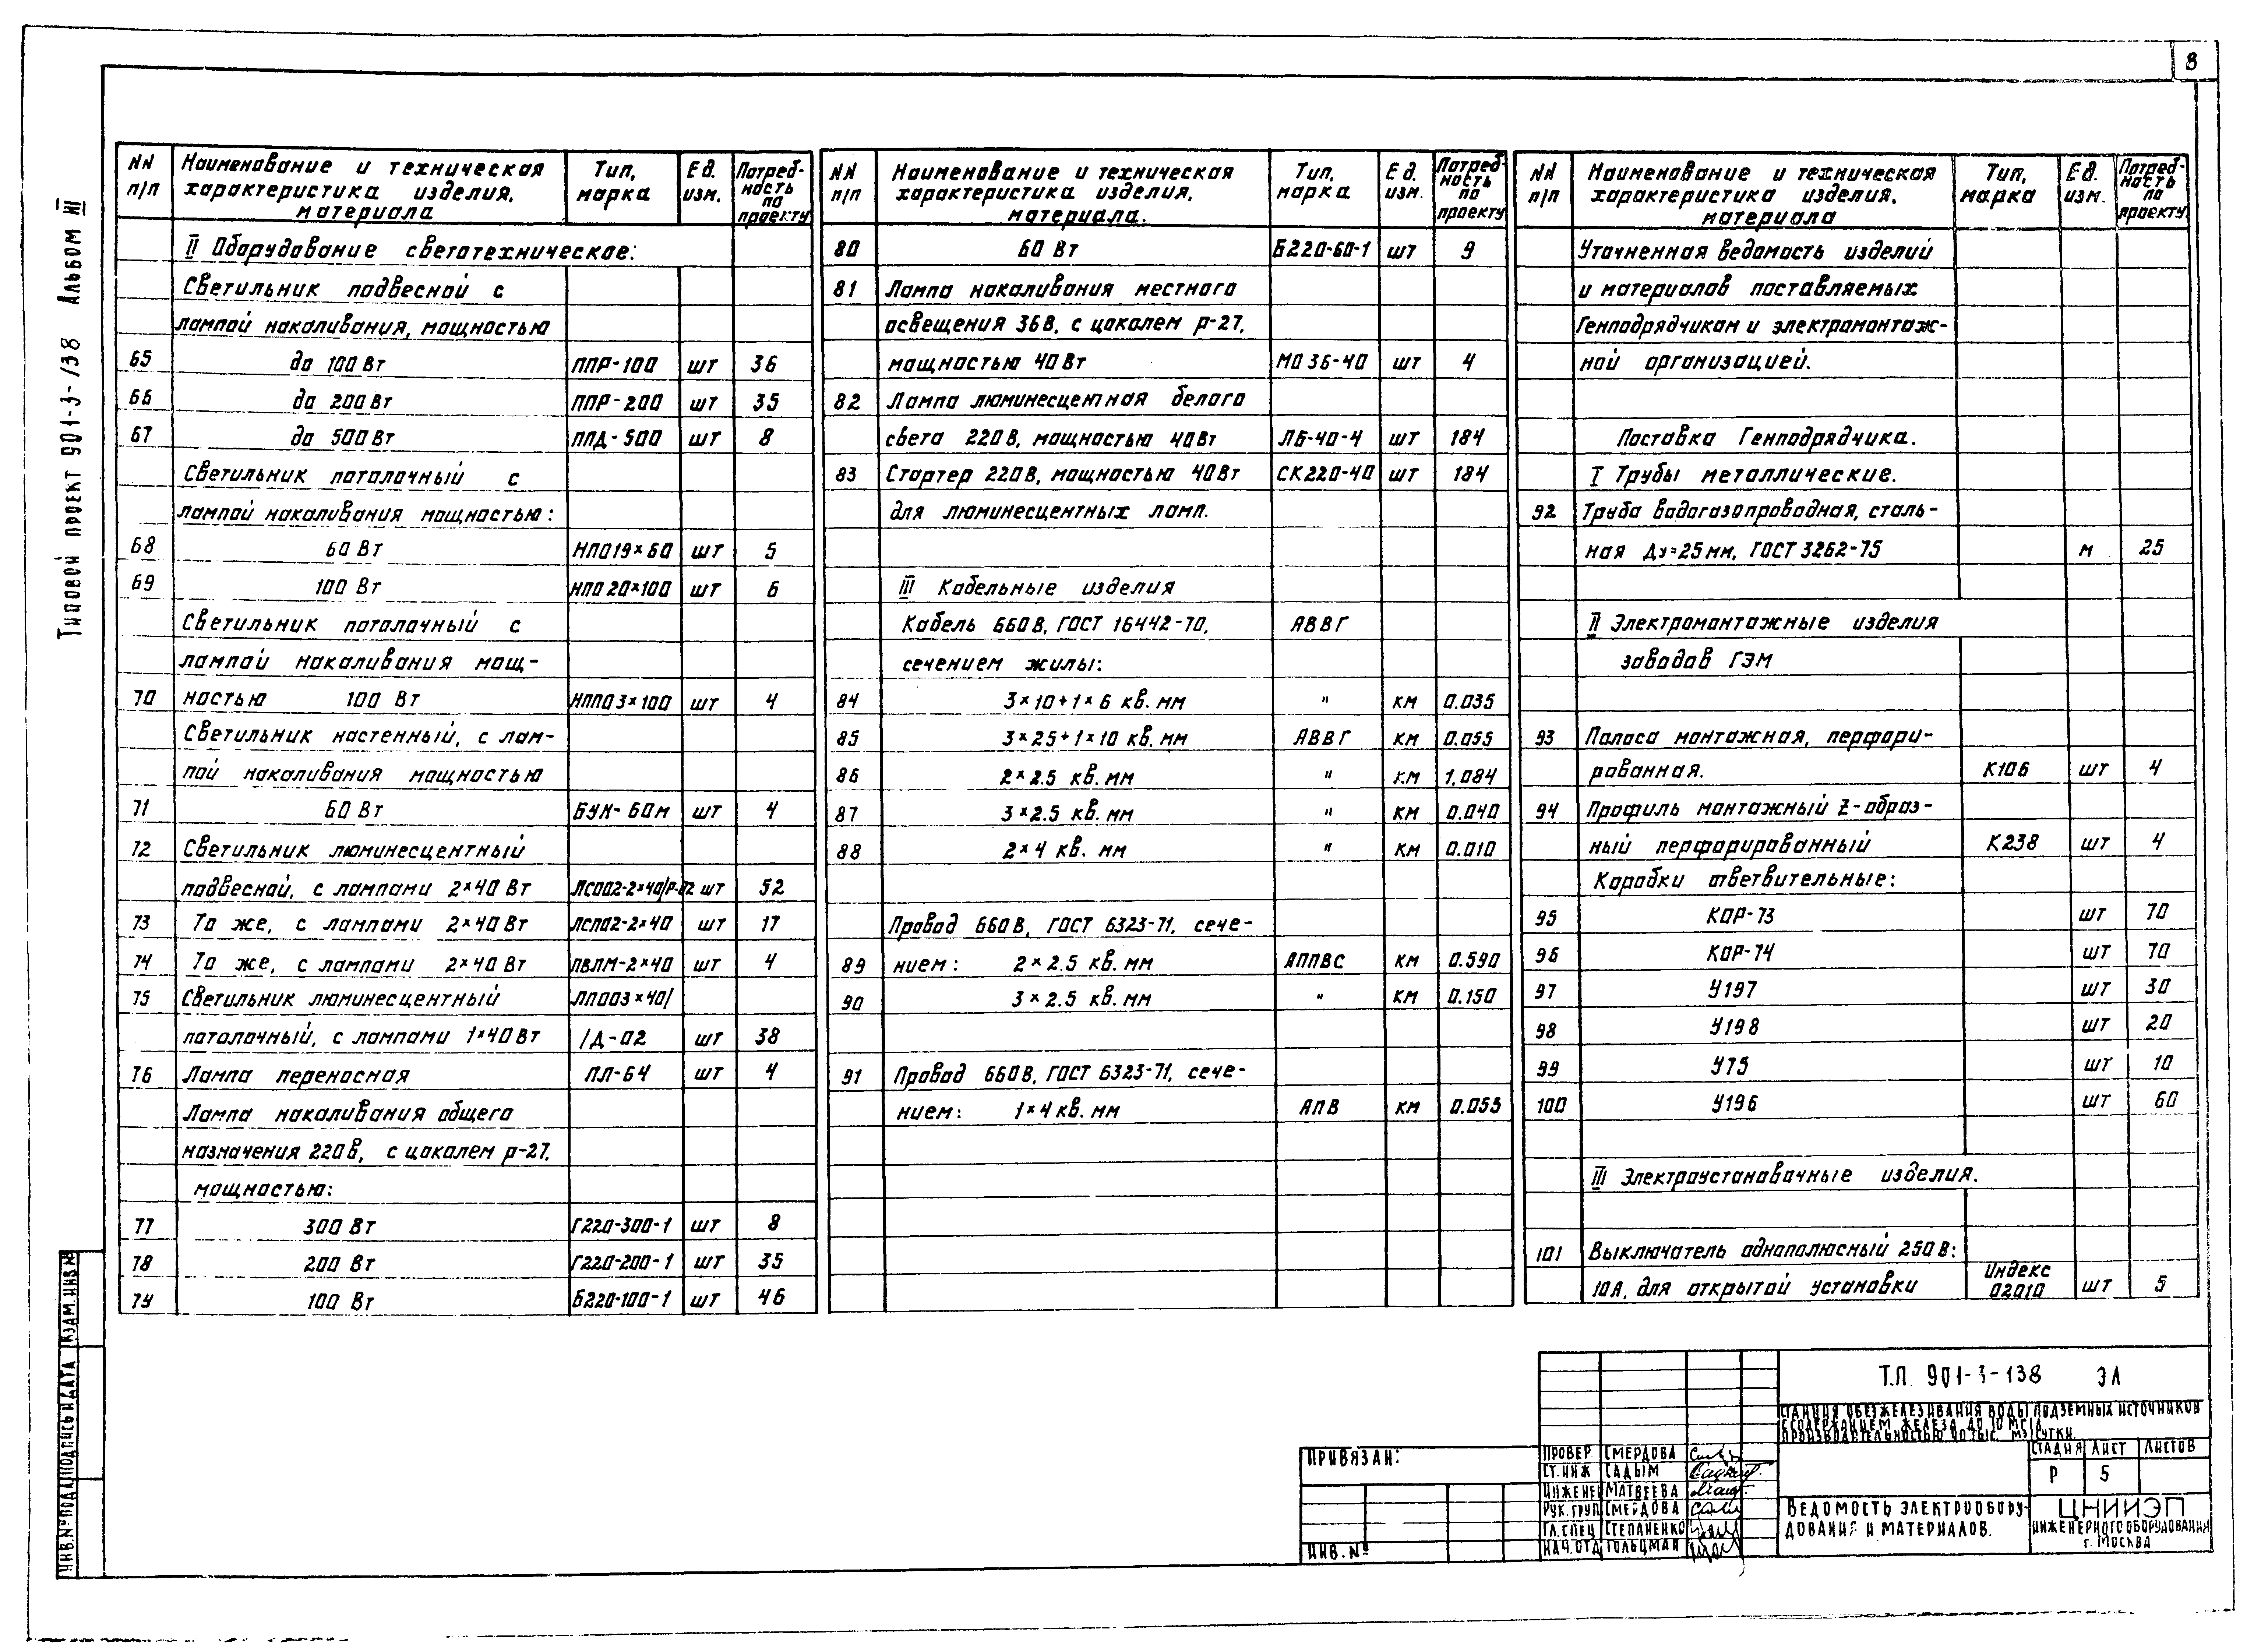 8
Типовой проект 901-3-138 Альбом III
NN п/п | Наименование и техническая характеристика изделия, материала | Тип, марка | Ед. изм. | Потреб-ность по проекту
II Оборудование светотехническое:
Светильник подвесной с
лампой накаливания, мощностью
65 до 100 Вт ППР-100 шт 36
66 до 200 Вт ППР-200 шт 35
67 до 500 Вт ППД-500 шт 8
Светильник потолочный с
лампой накаливания мощностью:
68 60 Вт НПО19×60 шт 5
69 100 Вт НПО 20×100 шт 6
Светильник потолочный с
лампой накаливания мощ-
70 ностью 100 Вт НПП03×100 шт 4
Светильник настенный, с лам-
пой накаливания мощностью
71 60 Вт БУН-60м шт 4
72 Светильник люминесцентный
подвесной, с лампами 2×40 Вт ЛСО02-2×40/Р-02 шт 52
73 То же, с лампами 2×40 Вт ЛСП02-2×40 шт 17
74 То же, с лампами 2×40 Вт ПВЛМ-2×40 шт 4
75 Светильник люминесцентный ЛПО03×40/
потолочный, с лампами 1×40 Вт /Д-02 шт 38
76 Лампа переносная ПЛ-64 шт 4
Лампа накаливания общего
назначения 220 в, с цоколем р-27,
мощностью:
77 300 Вт Г220-300-1 шт 8
78 200 Вт Г220-200-1 шт 35
79 100 Вт Б220-100-1 шт 46
NN п/п | Наименование и техническая характеристика изделия, материала. | Тип, марка | Ед. изм. | Потреб-ность по проекту
80 60 Вт Б220-60-1 шт 9
81 Лампа накаливания местного
освещения 36В, с цоколем р-27,
мощностью 40 Вт МО 36-40 шт 4
82 Лампа люминесцентная белого
света 220 В, мощностью 40 Вт ЛБ-40-4 шт 184
83 Стартер 220 В, мощностью 40 Вт СК220-40 шт 184
для люминесцентных ламп.
III Кабельные изделия
Кабель 660 В, ГОСТ 16442-70, АВВГ
сечением жилы:
84 3×10+1×6 кв. мм " км 0.035
85 3×25+1×10 кв. мм АВВГ км 0.055
86 2×2.5 кв. мм " км 1.084
87 3×2.5 кв. мм " км 0.040
88 2×4 кв. мм " км 0.010
Провод 660 В, ГОСТ 6323-71, сече-
89 нием: 2×2.5 кв. мм АППВС км 0.590
90 3×2.5 кв. мм " км 0.150
91 Провод 660 В, ГОСТ 6323-71, сече-
нием: 1×4 кв. мм АПВ км 0.055
NN п/п | Наименование и техническая характеристика изделия, материала | Тип, марка | Ед. изм. | Потреб-ность по проекту
Уточненная ведомость изделий
и материалов поставляемых
Генподрядчиком и электромонтаж-
ной организацией.
Поставка Генподрядчика.
I Трубы металлические.
92 Труба водогазопроводная, сталь-
ная Ду=25мм, ГОСТ 3262-75 м 25
II Электромонтажные изделия
заводов ГЭМ
93 Полоса монтажная, перфори-
рованная. К106 шт 4
94 Профиль монтажный Z-образ-
ный перфорированный К238 шт 4
Коробки ответвительные:
95 КОР-73 шт 70
96 КОР-74 шт 70
97 У197 шт 30
98 У198 шт 20
99 У75 шт 10
100 У196 шт 60
III Электроустановочные изделия.
101 Выключатель однополюсный 250 В:
10А, для открытой установки Индекс 02010 шт 5
Инв.№ подл. Подпись и дата Взам.инв.№
Привязан:
Инв. №
Провер Смердова
Ст.инж Садым
Инженер Матвеева
Рук.груп Смердова
Гл.спец Степаненко
Нач.отд Гольцман
Т.П. 901-3-138 ЭЛ
Станция обезжелезивания воды подземных источников
с содержанием железа до 10 мг/л
производительностью тыс. м3/сутки.
Стадия Лист Листов
Р 5
Ведомость электрообору-
дования и материалов.
ЦНИИЭП
инженерного оборудования
г. Москва